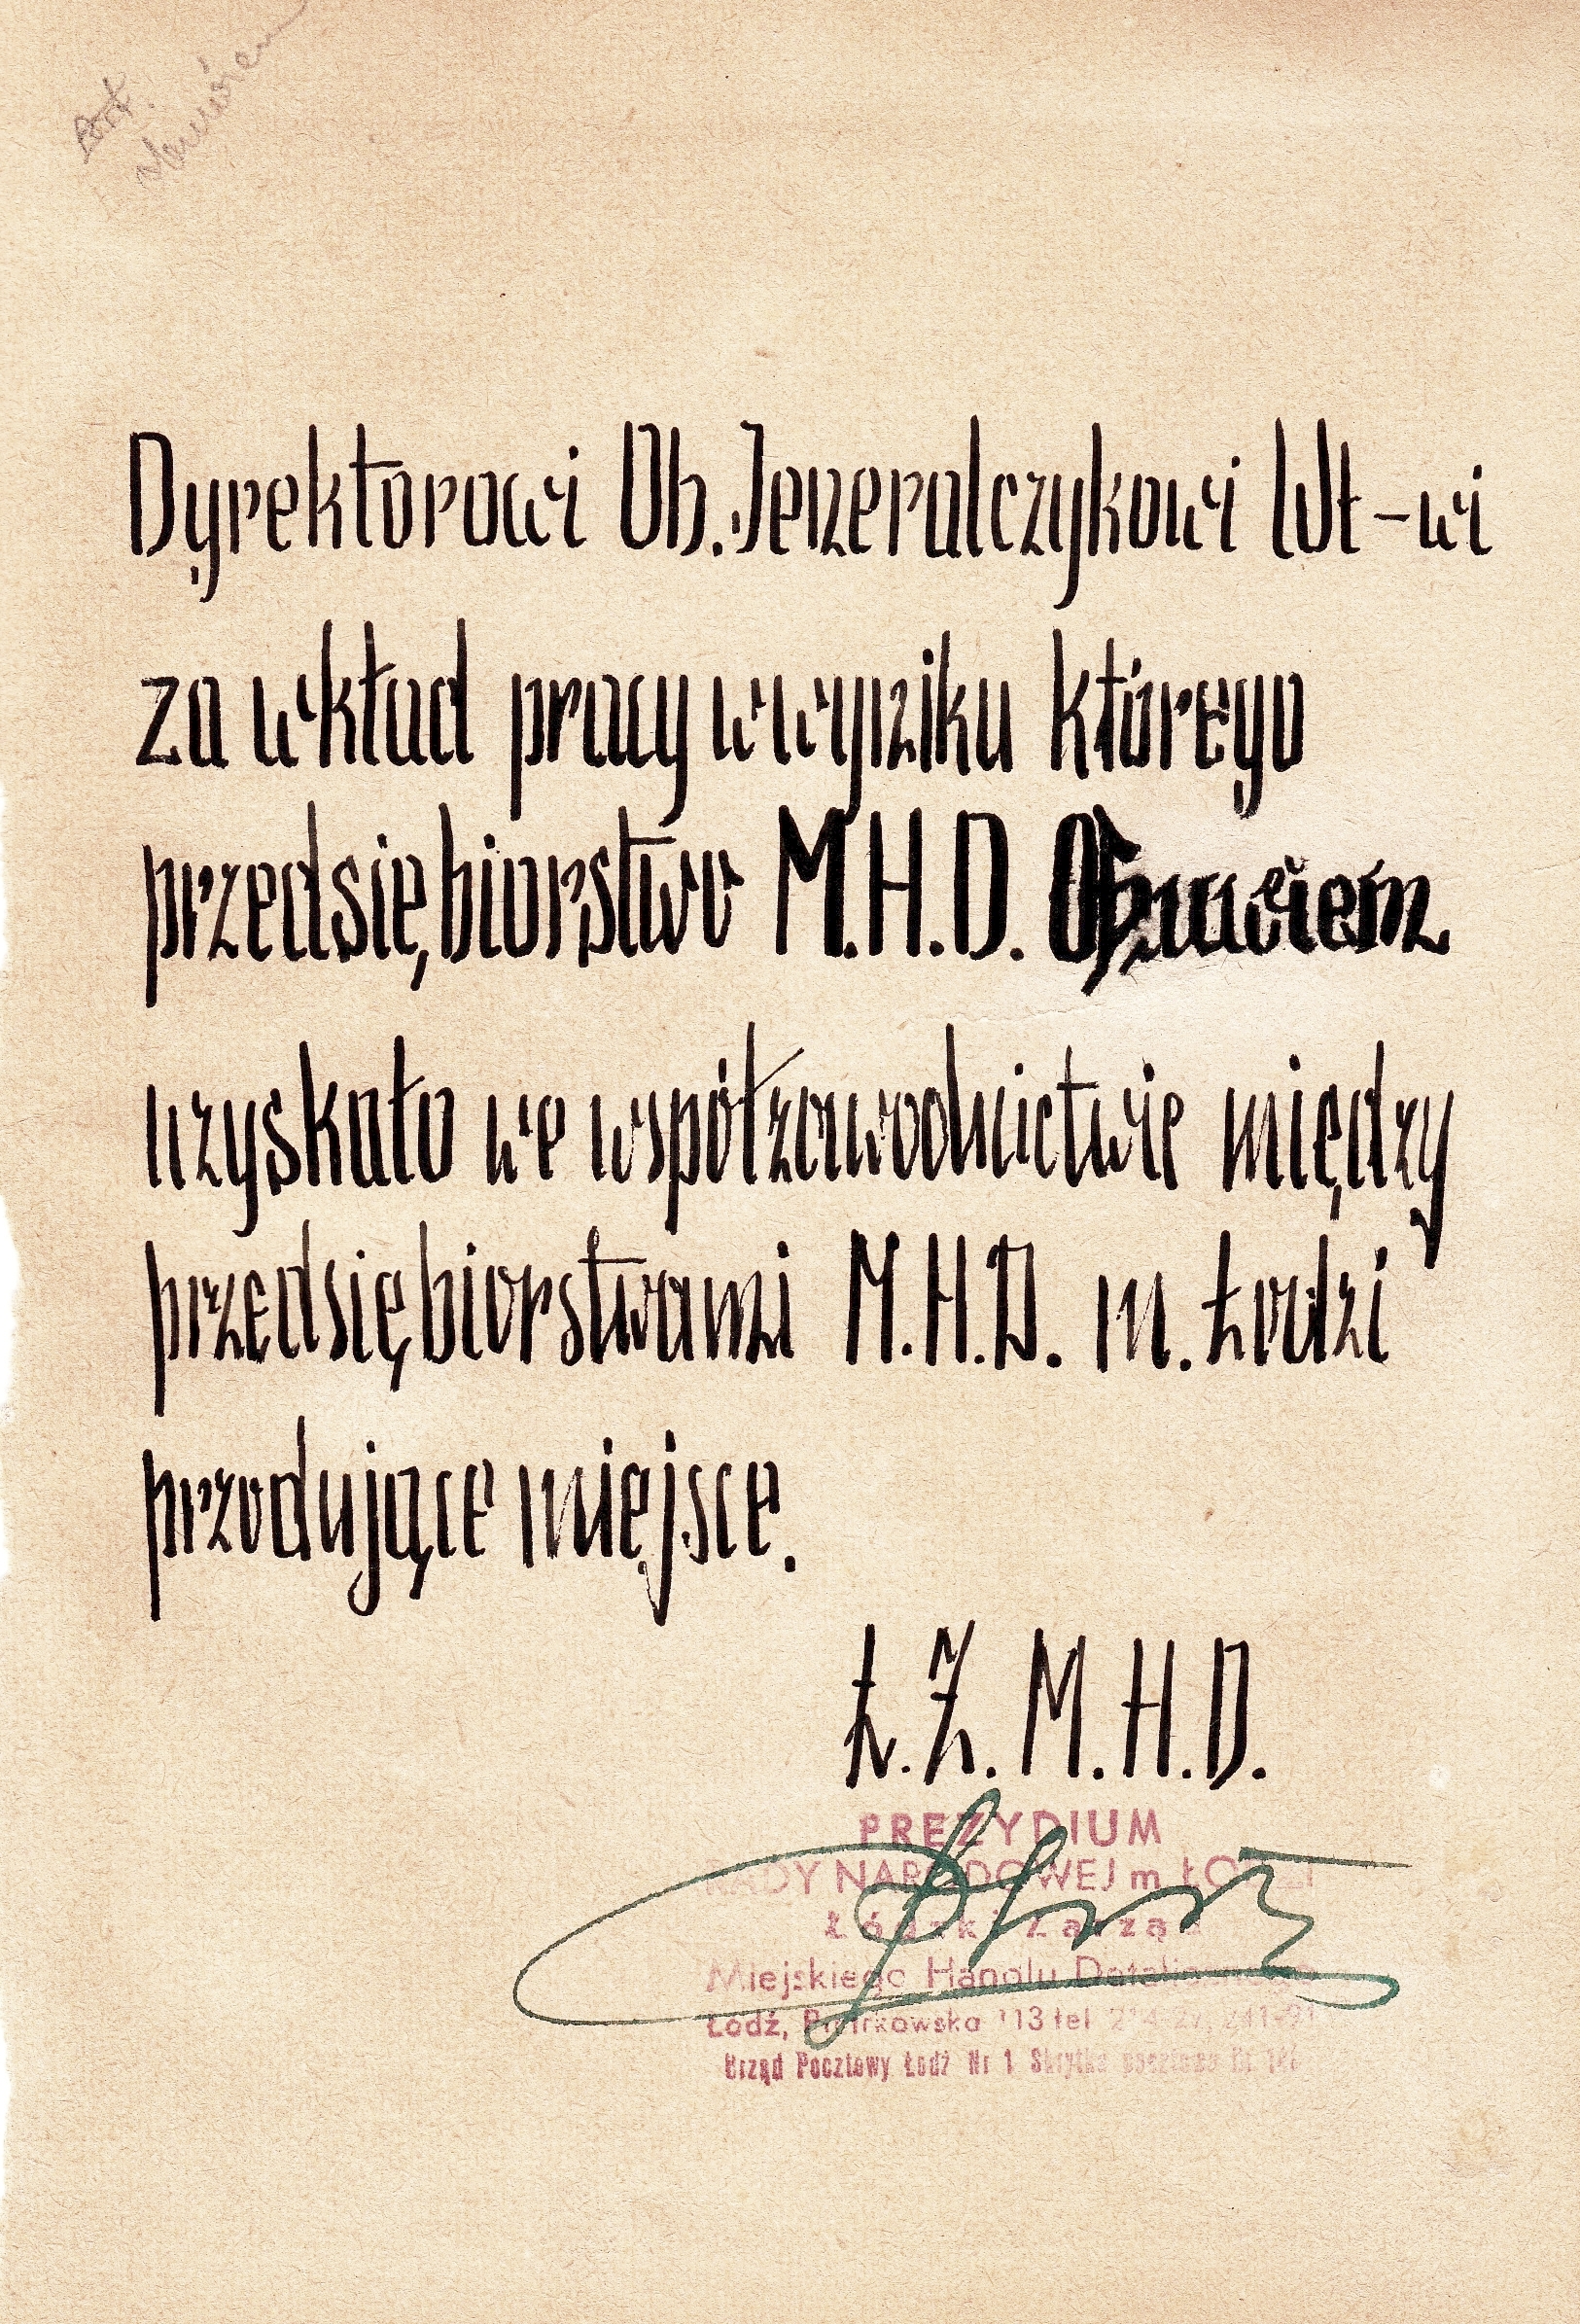 Dyrektorowi Ob. Jeneralczykowi Wł-wi
za wkład pracy w wyniku którego
przedsiębiorstwo M.H.D. Obuwiem
uzyskało we współzawodnictwie między
przedsiębiorstwami M.H.D. m. Łodzi
przodujące miejsce.
Ł.Z.M.H.D.
PREZYDIUM
RADY NARODOWEJ m. ŁODZI
Łódzki Zarząd
Miejskiego Handlu Detalicznego
Łódź, Piotrkowska 113 tel.
Urząd Pocztowy Łódź Nr 1 Skrytka pocztowa Nr